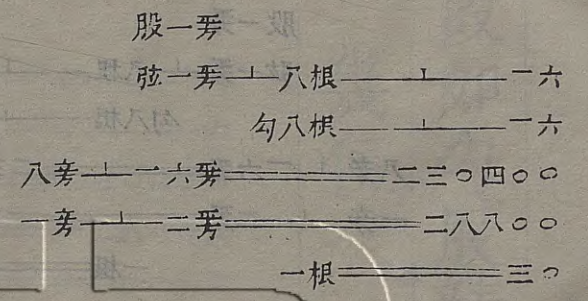 股一⿱平方
弦一⿱平方⊥八根⊥一六
勾八根⊥一六
八⿱立方⊥一六⿱平方＝二三〇四〇〇
一⿱立方⊥二⿱平方＝二八八〇〇
一根＝三〇